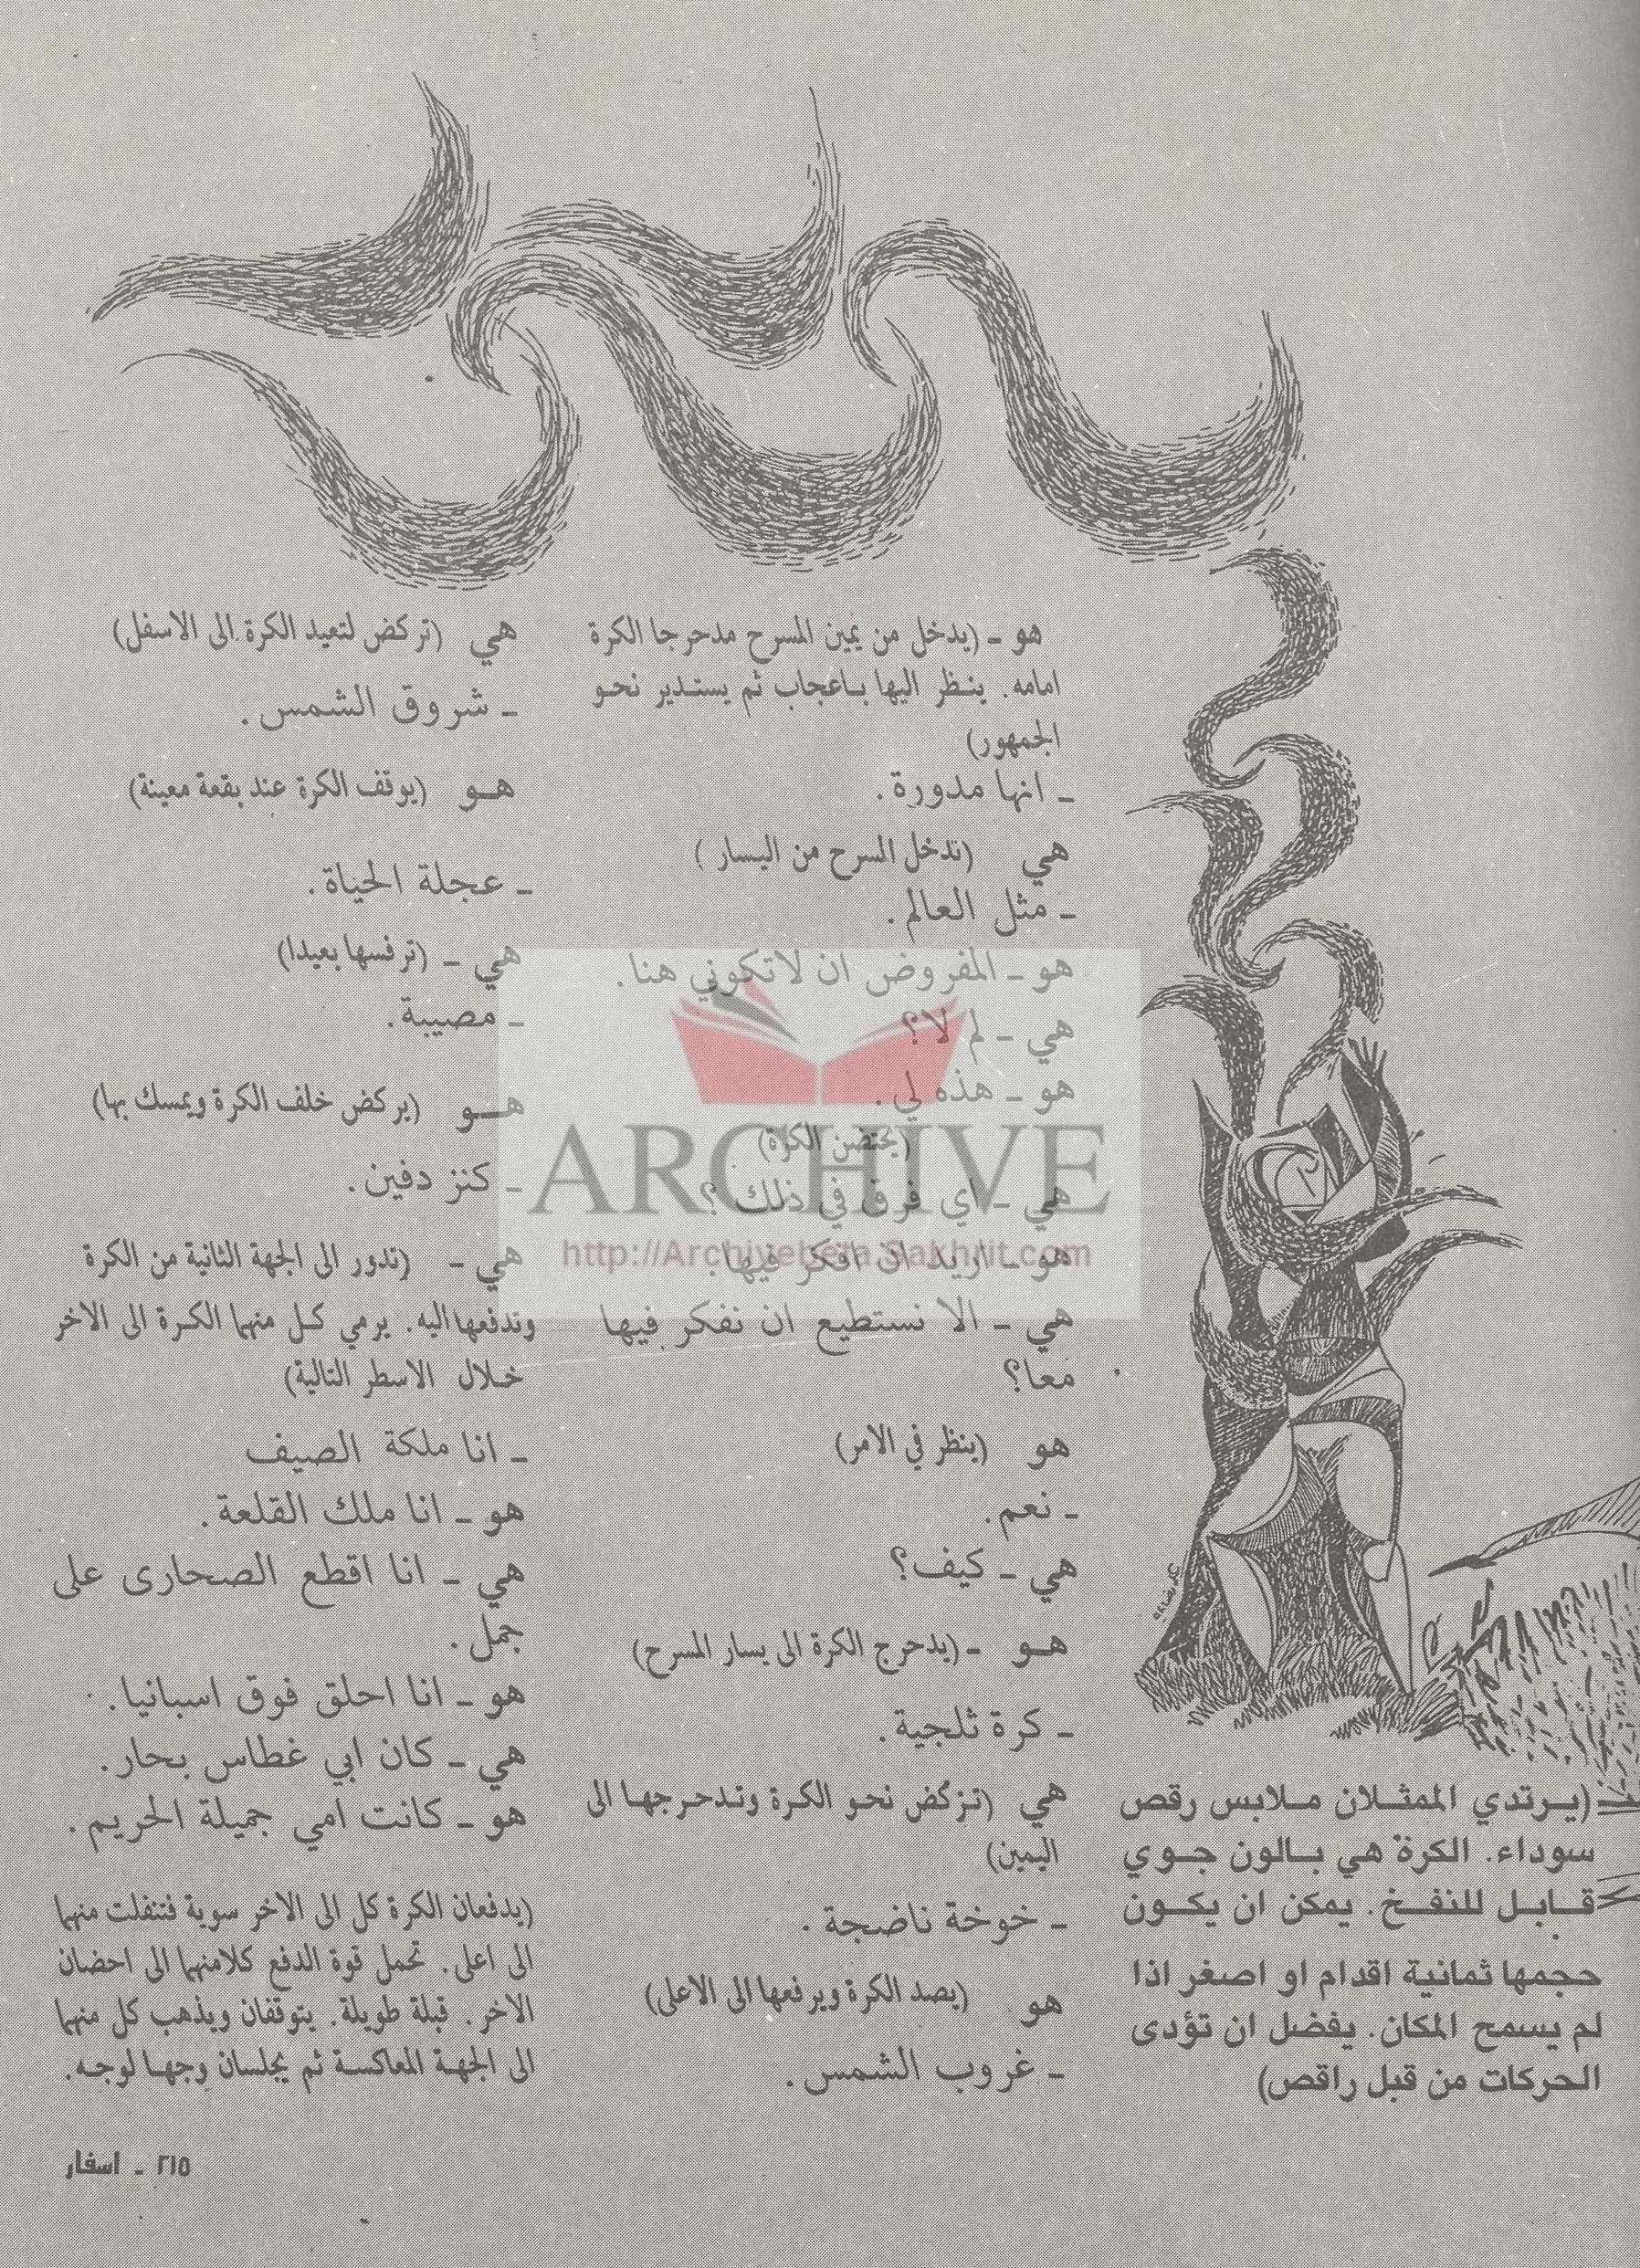 (يرتدي الممثلان ملابس رقص
سوداء. الكرة هي بالون جوي
قابل للنفخ. يمكن ان يكون
حجمها ثمانية اقدام او اصغر اذا
لم يسمح المكان. يفضل ان تؤدى
الحركات من قبل راقص)
هو - (يدخل من يمين المسرح مدحرجا الكرة
امامه. ينظر اليها باعجاب ثم يستدير نحو
الجمهور)
- انها مدورة.
هي (تدخل المسرح من اليسار)
- مثل العالم.
هو - المفروض ان لاتكوني هنا.
هي - لم لا؟
هو - هذه لي.
(يحتضن الكرة)
هي - اي فرق في ذلك؟
هو - اريد ان افكر فيها.
هي - الا نستطيع ان نفكر فيها
معا؟
هو (ينظر في الامر)
- نعم.
هي - كيف؟
هو - (يدحرج الكرة الى يسار المسرح)
- كرة ثلجية.
هي (تركض نحو الكرة وتدحرجها الى
اليمين)
- خوخة ناضجة.
هو (يصد الكرة ويرفعها الى الاعلى)
- غروب الشمس.
هي (تركض لتعيد الكرة الى الاسفل)
- شروق الشمس.
هو (يوقف الكرة عند بقعة معينة)
- عجلة الحياة.
هي - (ترفسها بعيدا)
- مصيبة.
هو (يركض خلف الكرة ويمسك بها)
- كنز دفين.
هي - (تدور الى الجهة الثانية من الكرة
وتدفعها اليه. يرمي كل منهما الكرة الى الاخر
خلال الاسطر التالية)
- انا ملكة الصيف
هو - انا ملك القلعة.
هي - انا اقطع الصحارى على
جمل.
هو - انا احلق فوق اسبانيا.
هي - كان ابي غطاس بحار.
هو - كانت امي جميلة الحريم.
(يدفعان الكرة كل الى الاخر سوية فتنفلت منهما
الى اعلى. تحمل قوة الدفع كلامنهما الى احضان
الاخر. قبلة طويلة. يتوقفان ويذهب كل منهما
الى الجهة المعاكسة ثم يجلسان وجها لوجه.
٢١٥ - اسفار
ARCHIVE
http://Archivebeta.Sakhrit.com